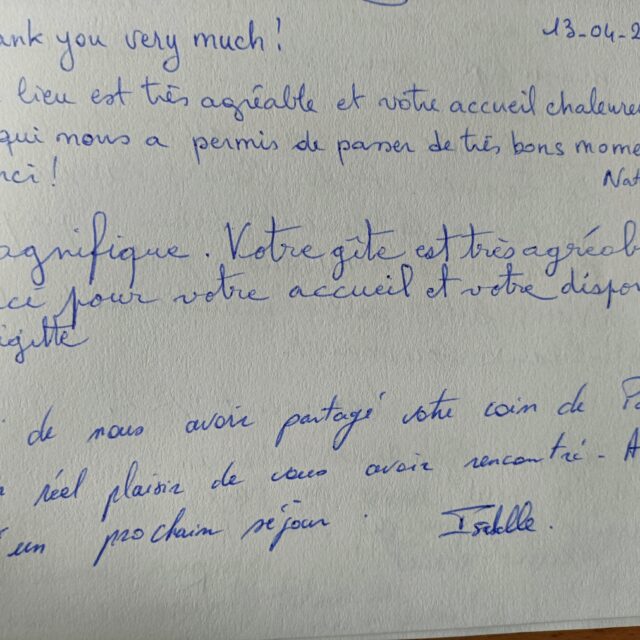 ank you very much! 13-04-2
lieu est très agréable et votre accueil chaleure
qui nous a permis de passer de très bons mome
rci! Nat
agnifique. Votre gîte est très agréab
ci pour votre accueil et votre dispon
igitte
de nous avoir partagé votre coin de Pa
réel plaisir de vous avoir rencontré - A
un prochain séjour. Isabelle.